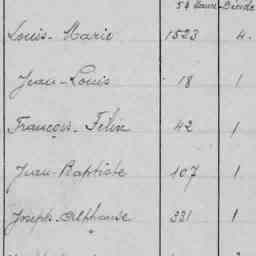 Louis-Marie 1523 4.
Jean-Louis 18 1
François-Félix 42 1
Jean-Baptiste 107 1
Joseph-Alphonse 331 1